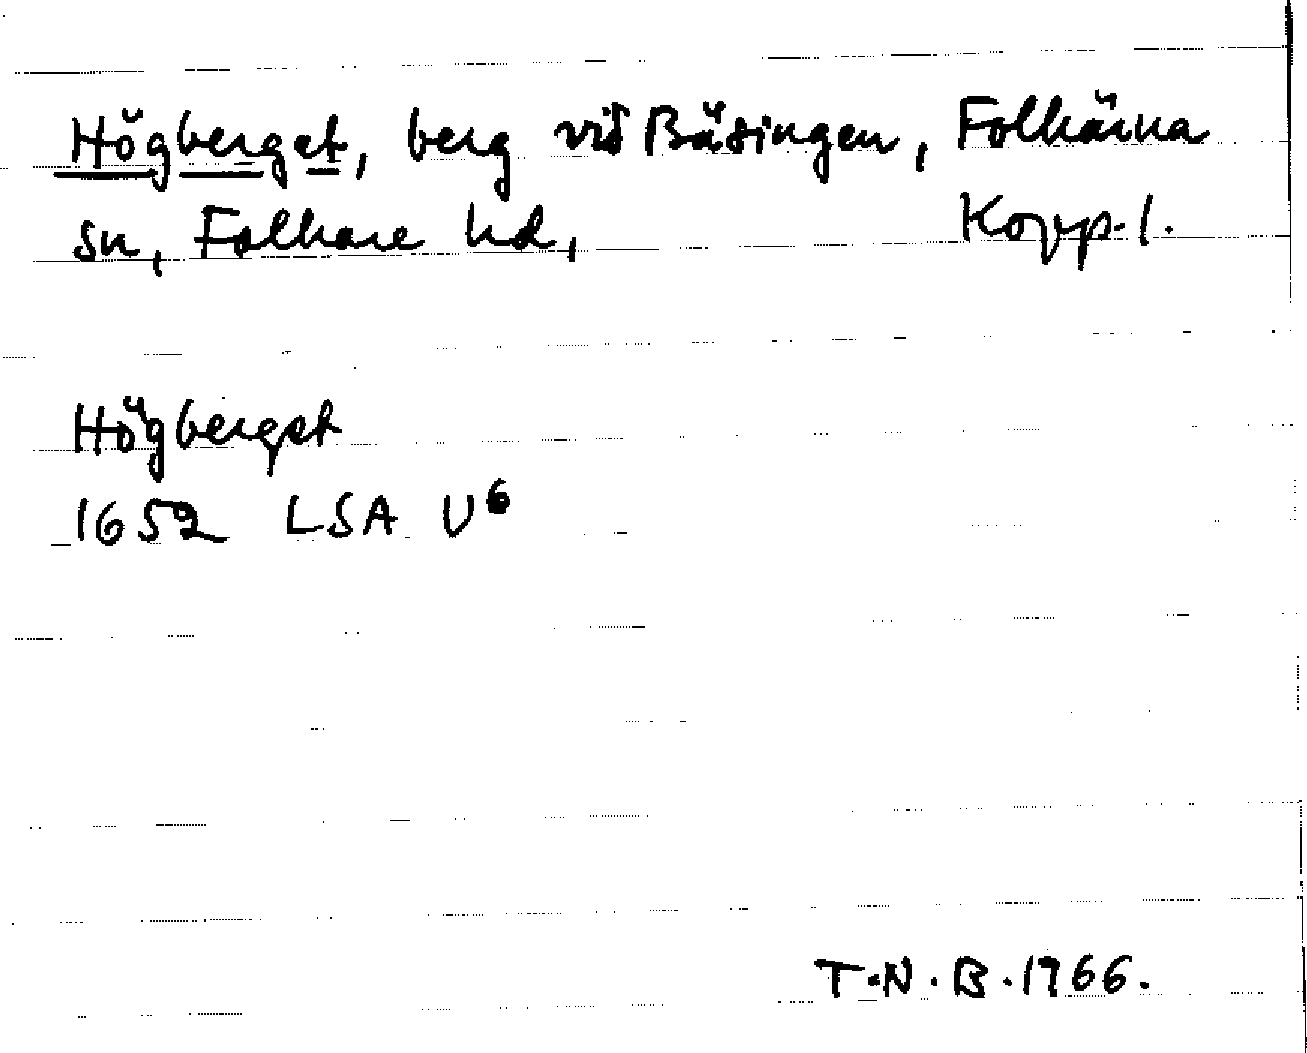 Högberget, berg vid Bäsingen, Folkärna
sn, Folkare hd, Kopp. l.
Högberget
1652 LSA U⁶
T.N.B. 1966.